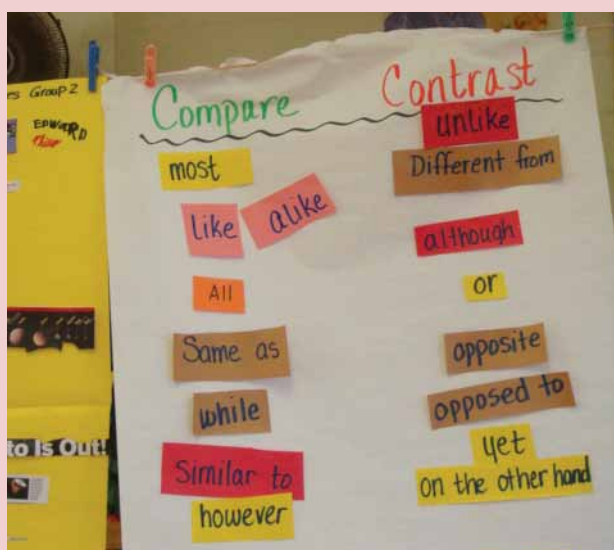 es Group 2
EDWARD
Compare
most
like
alike
All
Same as
while
Similar to
however
Contrast
unlike
Different from
although
or
opposite
opposed to
yet
on the other hand
to Is Out!